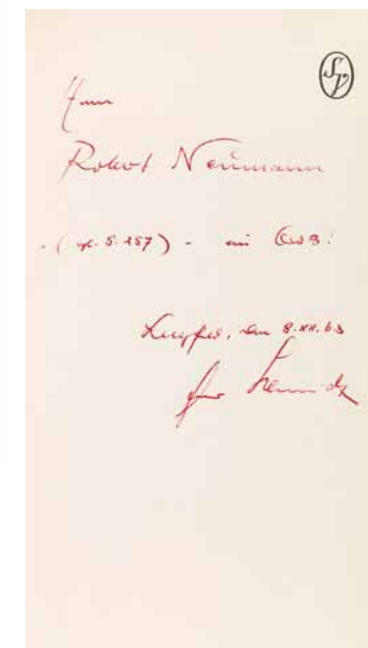 Herrn
Robert Neumann
- (vgl. S. 257) - ein Gruß!
Bargfeld, den 8.XII.63
Arno Schmidt